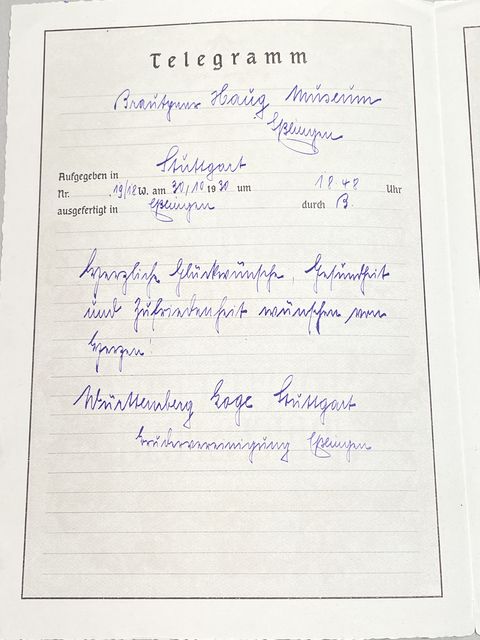 Telegramm
Brautpaar Haug Museum
Eßlingen
Aufgegeben in Stuttgart
Nr. 19/18 W. am 30/10 1930 um 18 48 Uhr
ausgefertigt in Eßlingen durch B.
Herzliche Glückwünsche, Gesundheit
und Zufriedenheit wünschen von
Herzen
Württemberg Loge Stuttgart
Brudervereinigung Eßlingen